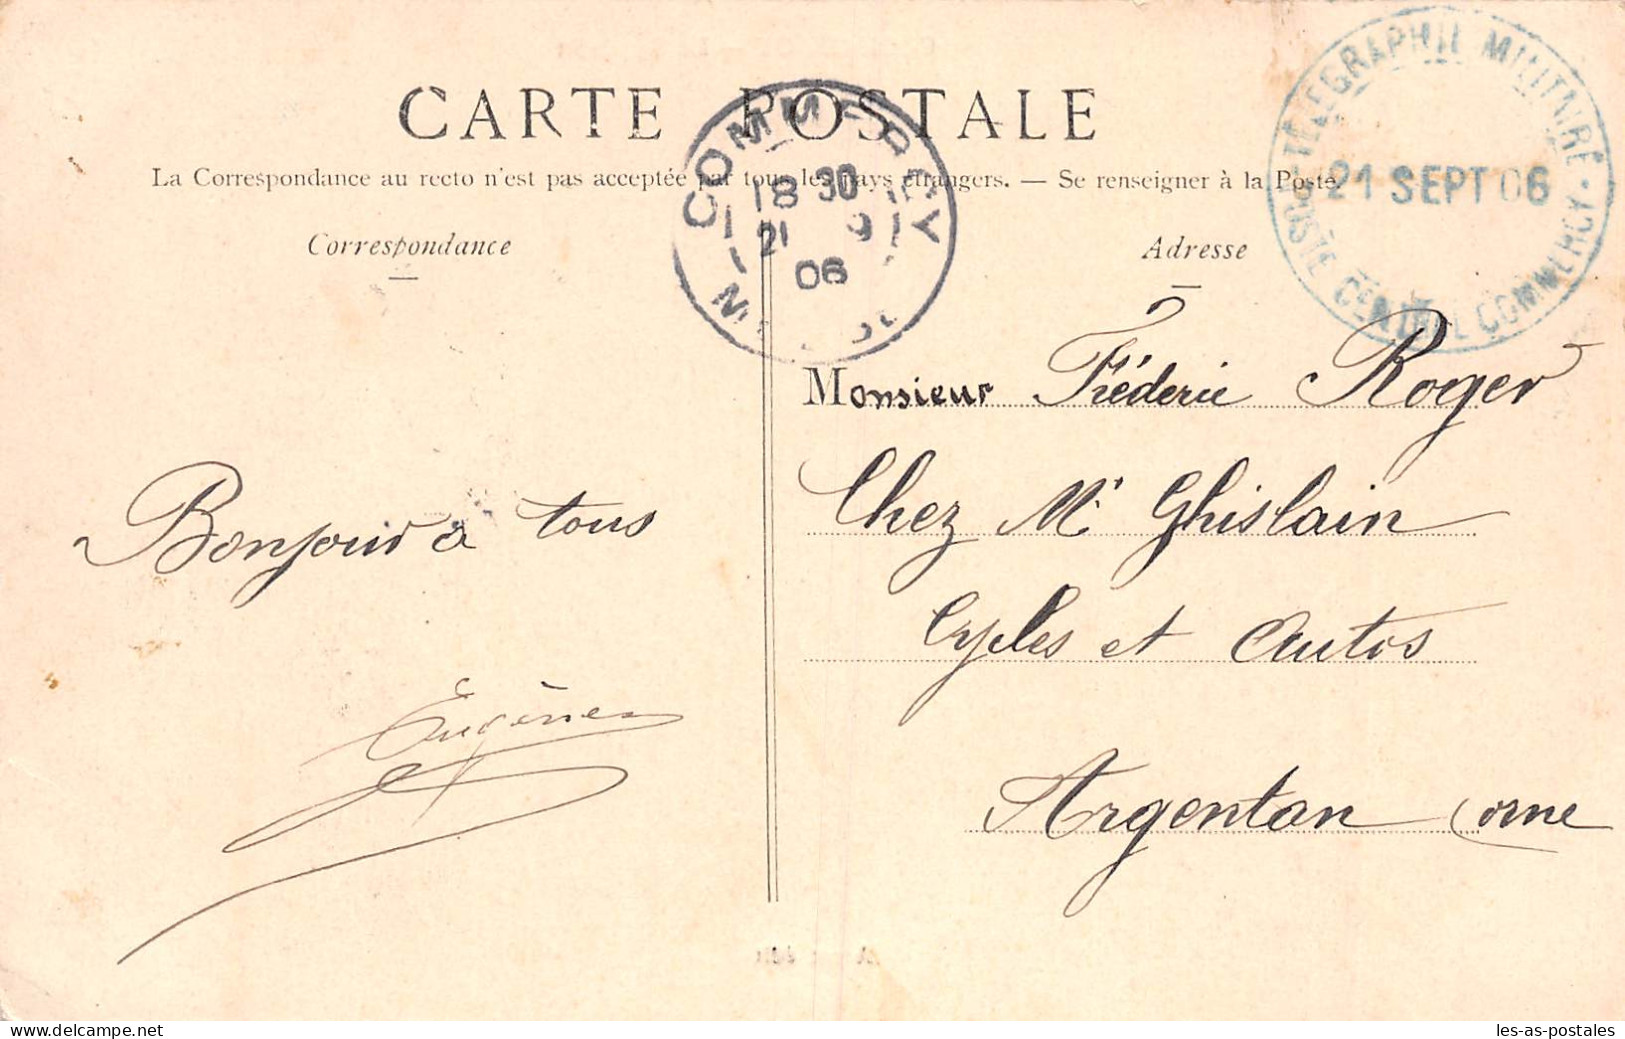 CARTE POSTALE
La Correspondance au recto n'est pas acceptée par tous les pays étrangers. — Se renseigner à la Poste.
Correspondance
Adresse
COMMERCY
18 30
21 9
06
TÉLÉGRAPHIE MILITAIRE
21 SEPT 06
POSTE CENTRAL COMMERCY
Monsieur Fréderic Roger
Chez Mr Ghislain
Cycles et Autos
Argentan Orne
Bonjour à tous
Eugène
delcampe.net
les-as-postales